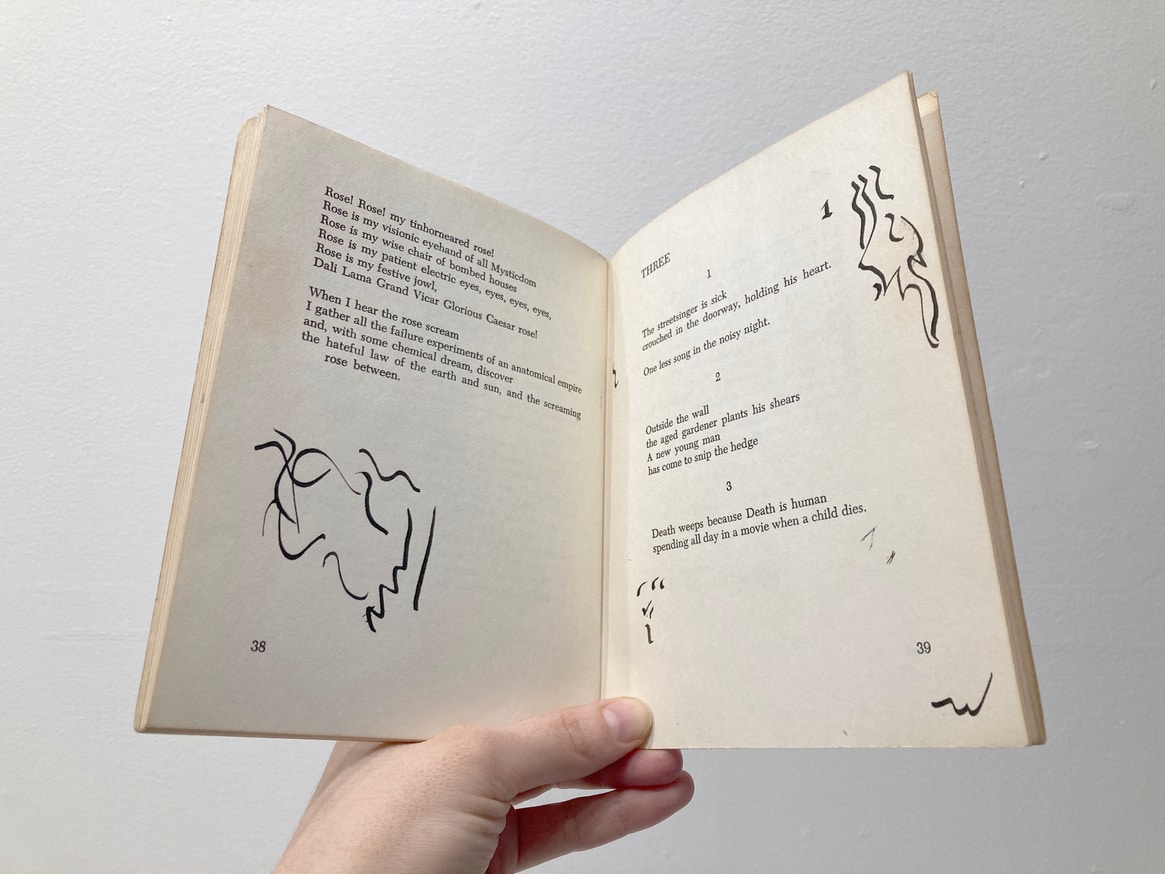 Rose! Rose! my tinhorneared rose!
Rose is my visionic eyehand of all Mysticdom
Rose is my wise chair of bombed houses
Rose is my patient electric eyes, eyes, eyes, eyes,
Rose is my festive jowl,
Dali Lama Grand Vicar Glorious Caesar rose!
When I hear the rose scream
I gather all the failure experiments of an anatomical empire
and, with some chemical dream, discover
the hateful law of the earth and sun, and the screaming
rose between.
38
THREE
1
The streetsinger is sick
crouched in the doorway, holding his heart.
One less song in the noisy night.
2
Outside the wall
the aged gardener plants his shears
A new young man
has come to snip the hedge
3
Death weeps because Death is human
spending all day in a movie when a child dies.
39